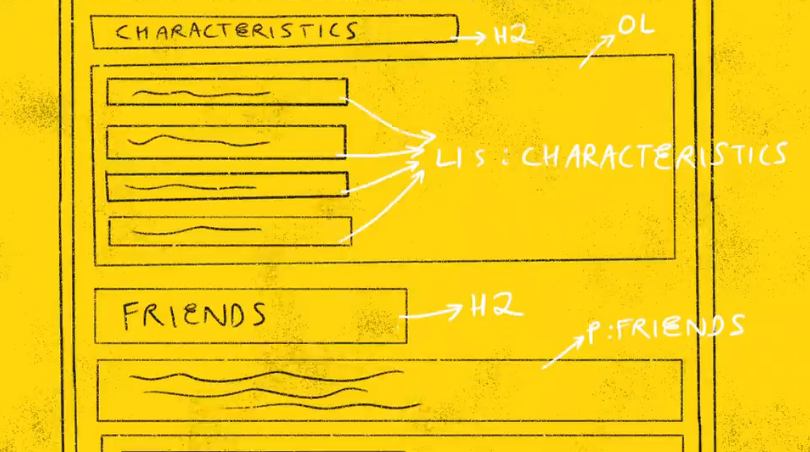 CHARACTERISTICS
H2
OL
LIs : CHARACTERISTICS
FRIENDS
H2
P:FRIENDS